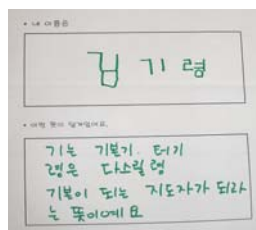 • 내 이름은
김기령
• 어떤 뜻이 담겨있어요.
기는 기본기. 터기
령은 다스릴령
기본이 되는 지도자가 되라
는 뜻이에요